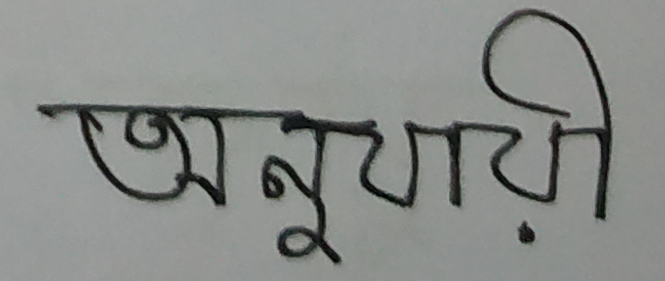 অনুযায়ী